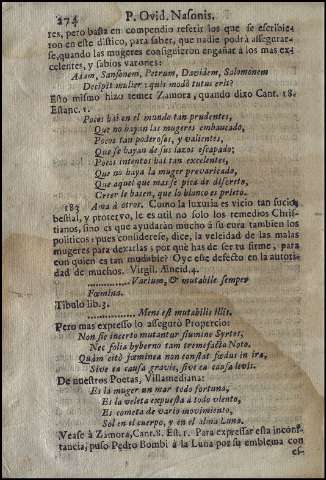 274 P. Ovid. Nasonis.
res, pero basta en compendio referir los que se escribie-
ron en este distico, para saber, que nadie podrà assegurar-
se, quando las mugeres consiguieron engañar à los mas ex-
celentes, y sabios varones:
Adam, Sansonem, Petrum, Davidem, Salomonem
Decipit mulier: quis modò tutus erit?
Esto mismo hizo temer Zamora, quando dixo Cant. 18.
Estanc. 1.
Pocos hai en el mundo tan prudentes,
Que no hayan las mugeres embaucado,
Pocos tan poderosos, y valientes,
Que se hayan de sus lazos escapado;
Pocos intentos hai tan excelentes,
Que no haya la muger prevaricado,
Que aquel que mas se pica de discreto,
Creer le hacen, que lo blanco es prieto.
183 Ama à otros. Como la luxuria es vicio tan sucio,
bestial, y protervo, le es util no solo los remedios Chris-
tianos, sino es que ayudaràn mucho à su cura tambien los
politicos: pues considerese, dice, la veleidad de las malas
mugeres para dexarlas: por què has de ser tu firme, para
con quien es tan mudable? Oye este defecto en la autori-
dad de muchos. Virgil. Æneid. 4.
............ Varium, & mutabile semper
Fœmina.
Tibulo lib. 3.
............ Mens est mutabilis illis.
Pero mas expresso lo assegurò Propercio:
Non sic incerto mutantur flumine Syrtes,
Nec folia hyberno tam tremefacta Noto.
Quàm citò fœminea non constat fœdus in ira,
Sive ea causa gravis, sive ea causa levis.
De nuestros Poetas, Villamediana:
Es la muger un mar todo fortuna,
Es la veleta expuesta à todo viento,
Es cometa de vario movimiento,
Sol en el cuerpo, y en el alma Luna.
Vease à Zamora, Cant. 8. Est. 1. Para expressar esta incons-
tancia, puso Pedro Bombi à la Luna por su emblema con
es-